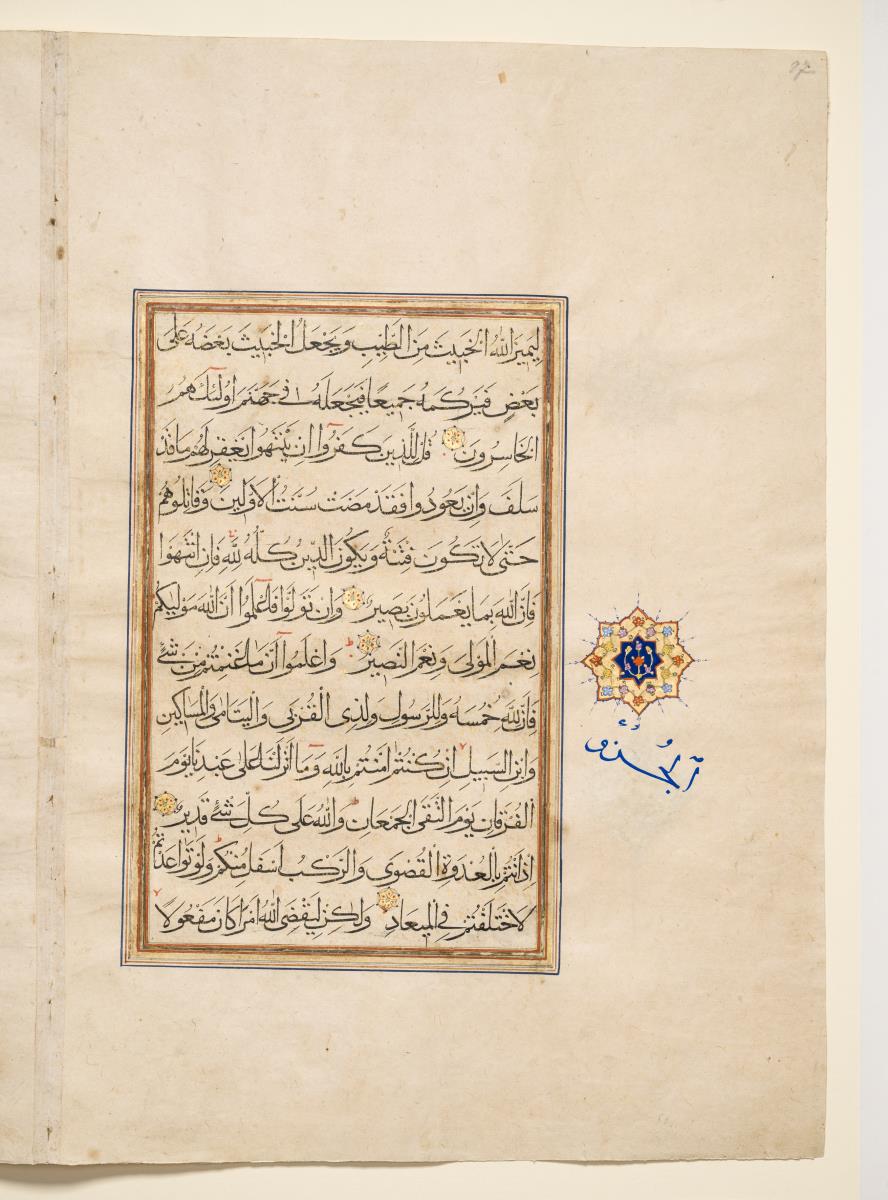 لِيَمِيزَ اللهُ الْخَبِيثَ مِنَ الطَّيِّبِ وَيَجْعَلَ الْخَبِيثَ بَعْضَهُ عَلَى
بَعْضٍ فَيَرْكُمَهُ جَمِيعًا فَيَجْعَلَهُ فِي جَهَنَّمَ اُولٰئِكَ هُمُ
الْخَاسِرُونَ قُلْ لِلَّذِينَ كَفَرُوا اِنْ يَنْتَهُوا يُغْفَرْ لَهُمْ مَا قَدْ
سَلَفَ وَاِنْ يَعُودُوا فَقَدْ مَضَتْ سُنَّتُ الْاَوَّلِينَ وَقَاتِلُوهُمْ
حَتّٰى لَا تَكُونَ فِتْنَةٌ وَيَكُونَ الدِّينُ كُلُّهُ لِلّٰهِ فَاِنِ انْتَهَوْا
فَاِنَّ اللهَ بِمَا يَعْمَلُونَ بَصِيرٌ وَاِنْ تَوَلَّوْا فَاعْلَمُوا اَنَّ اللهَ مَوْلٰيكُمْ
نِعْمَ الْمَوْلٰى وَنِعْمَ النَّصِيرُ وَاعْلَمُوا اَنَّ مَا غَنِمْتُمْ مِنْ شَيْءٍ
فَاَنَّ لِلّٰهِ خُمُسَهُ وَلِلرَّسُولِ وَلِذِي الْقُرْبٰى وَالْيَتَامٰى وَالْمَسَاكِينِ
وَابْنِ السَّبِيلِ اِنْ كُنْتُمْ اٰمَنْتُمْ بِاللهِ وَمَا اَنْزَلْنَا عَلٰى عَبْدِنَا يَوْمَ
الْفُرْقَانِ يَوْمَ الْتَقَى الْجَمْعَانِ وَاللهُ عَلٰى كُلِّ شَيْءٍ قَدِيرٌ
اِذْ اَنْتُمْ بِالْعُدْوَةِ الْقُصْوٰى وَالرَّكْبُ اَسْفَلَ مِنْكُمْ وَلَوْ تَوَاعَدْتُمْ
لَاخْتَلَفْتُمْ فِي الْمِيعَادِ وَلٰكِنْ لِيَقْضِيَ اللهُ اَمْرًا كَانَ مَفْعُولًا
الْجُزْءُ